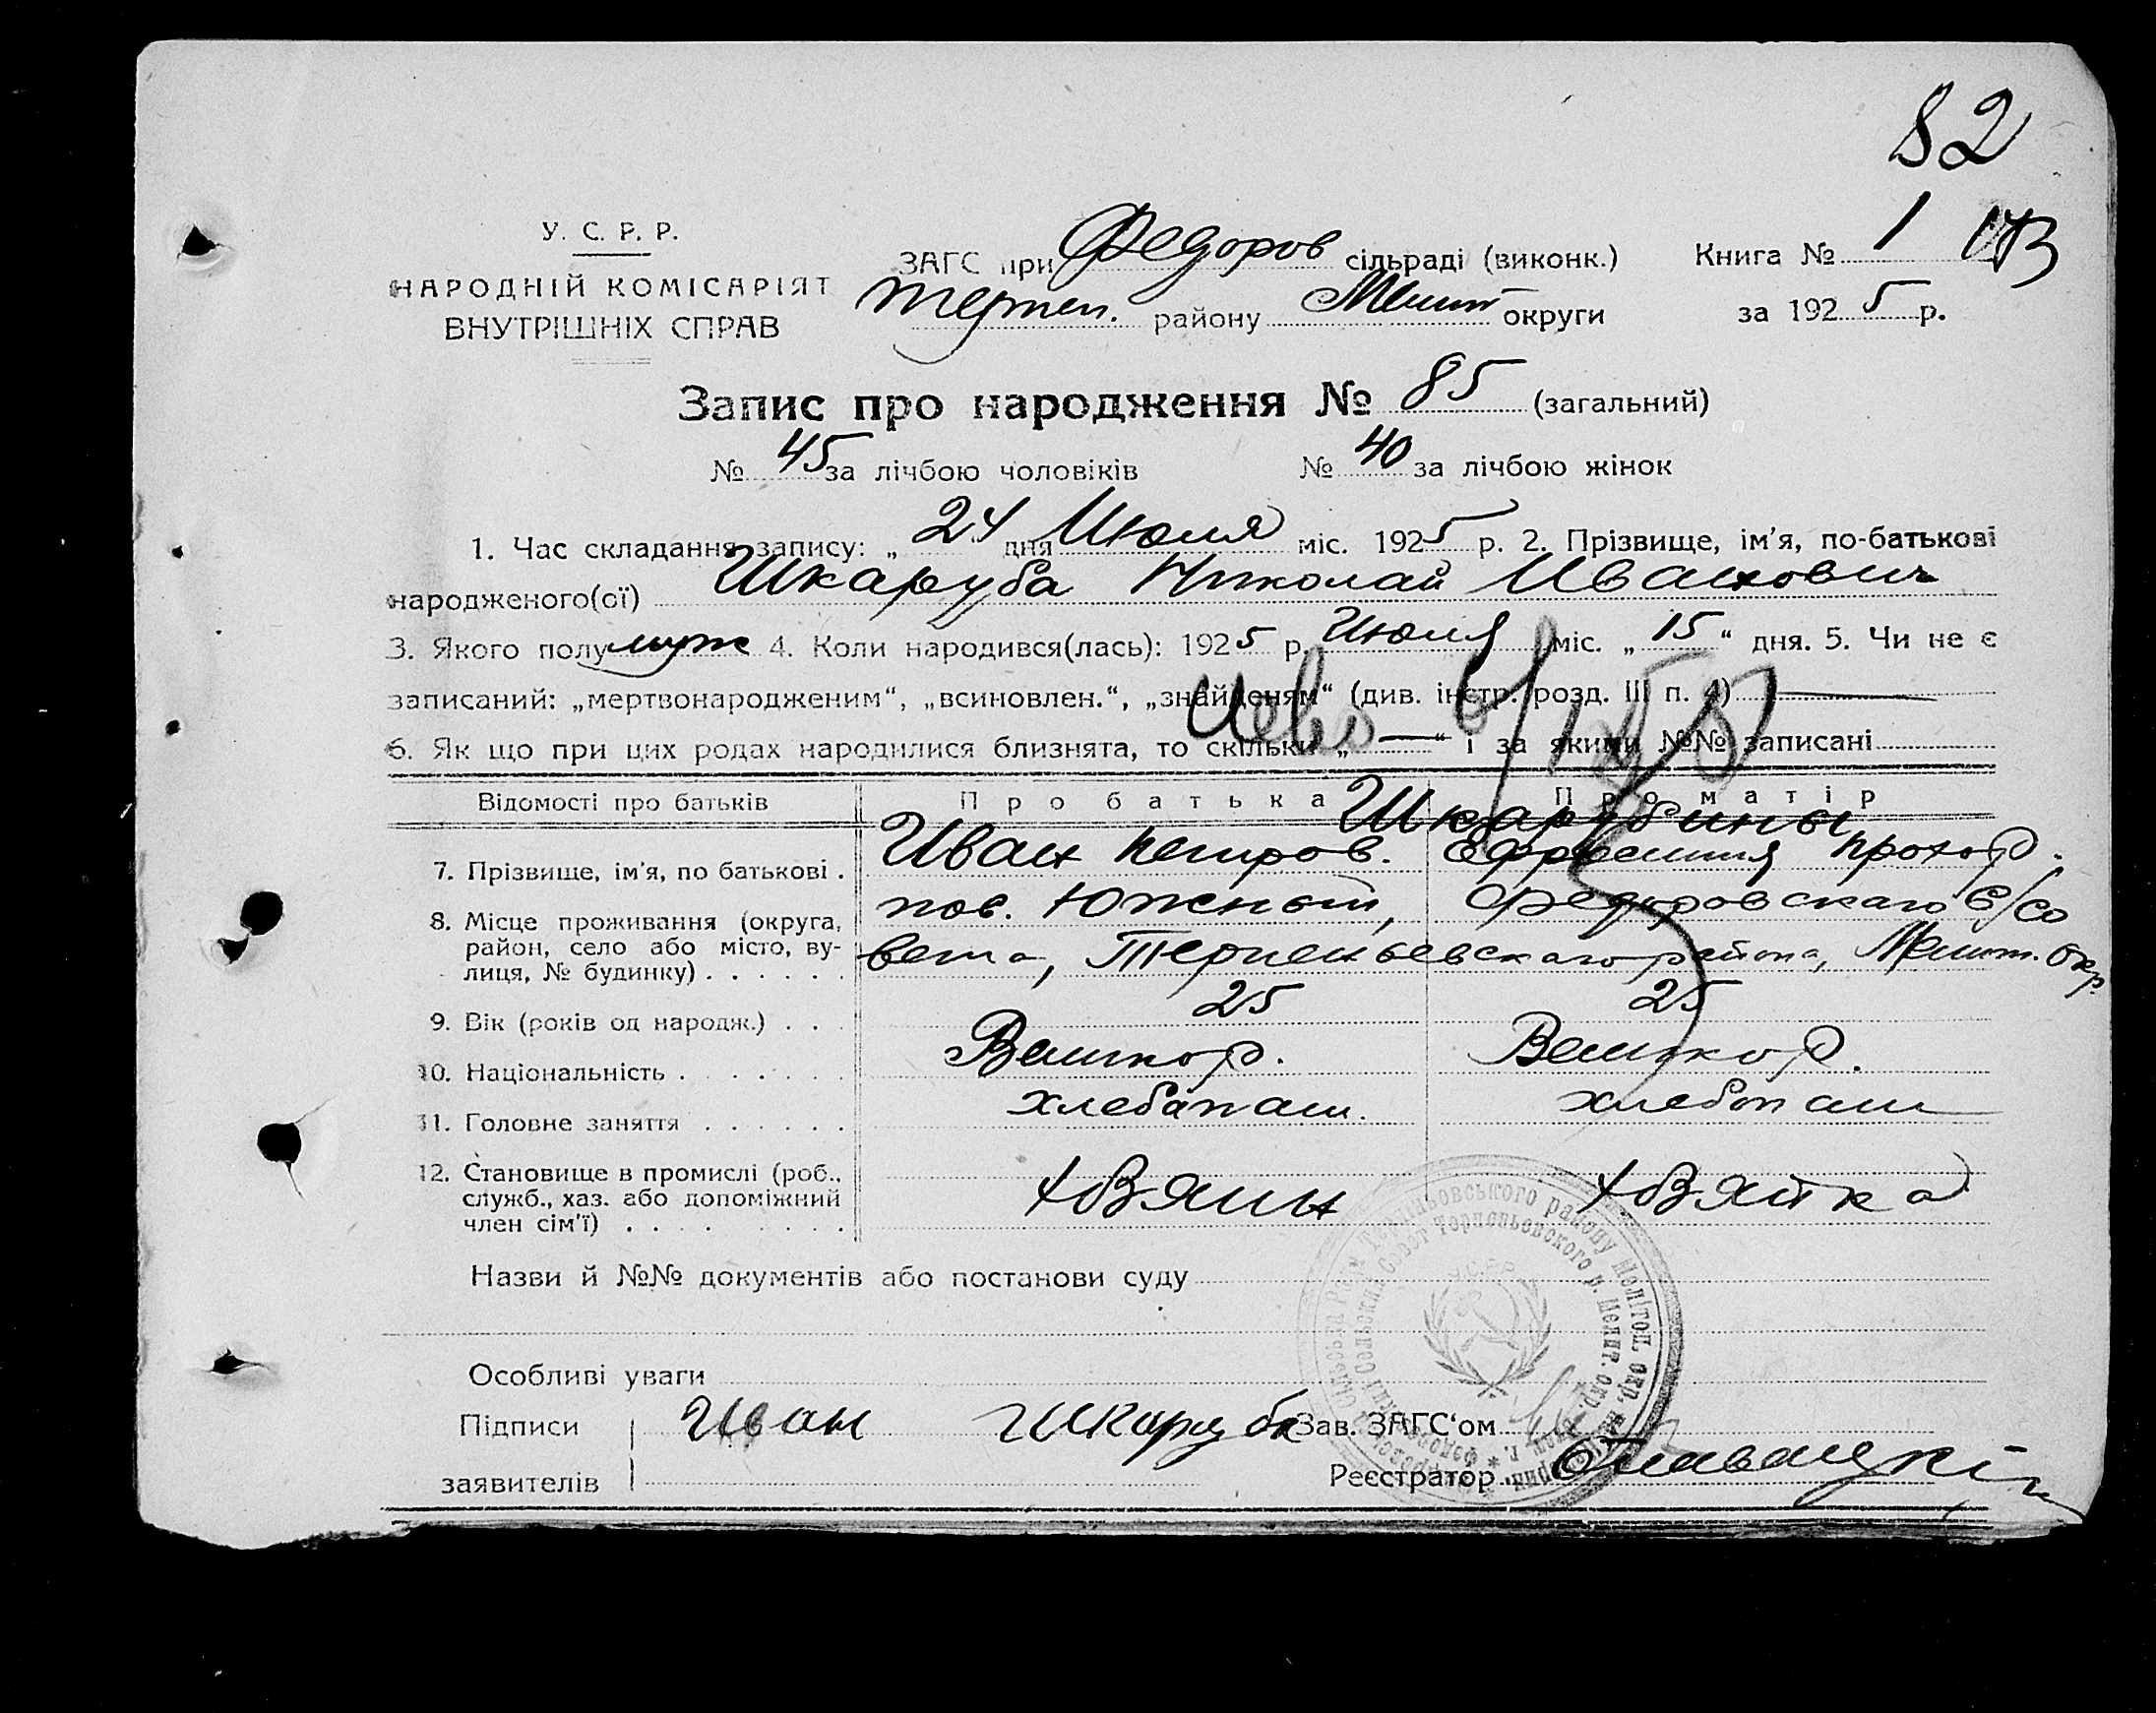 82
У. С. Р. Р.
НАРОДНІЙ КОМІСАРІЯТ
ВНУТРІШНІХ СПРАВ
ЗАГС при Федоров сільраді (виконк.) Книга № 1
Терпен. району Мелит округи за 1925 р.
Запис про народження № 85 (загальний)
№ 45 за лічбою чоловіків № 40 за лічбою жінок
1. Час складання запису: „ 24 дня Июля міс. 1925 р. 2. Прізвище, ім’я, по-батькові
народженого(ої) Шкаруба Николай Иванович
3. Якого полу муж 4. Коли народився(лась): 1925 р. Июля міс. „ 15 “ дня. 5. Чи не є
записаний: „мертвонародженим“, „всиновлен.“, „знайденям“ (див. інстр. розд. III п. 4)
6. Як що при цих родах народилися близнята, то скільки „ — “ і за якими №№ записані
Відомості про батьків Про батька Про матір
Шкарубины
7. Прізвище, ім’я, по батькові . Иван Петров. Ефросиния Прохор.
8. Місце проживання (округа, район, село або місто, вулиця, № будинку) . . . . . . пос. Южный, Федоровскаго С/со
вета, Терпеньевскаго района, Мелит. Окр.
9. Вік (років од народж.) . . . 25 25
10. Національність . . . . . . . Великор. Великор.
11. Головне заняття . . . . . . хлебапаш. хлебопаш
12. Становище в промислі (роб., служб., хаз. або допоміжний член сім’ї) . . . . . . . . хозяин хозяйка
Назви й №№ документів або постанови суду
Особливі уваги
Підписи Иван Шкаруба Зав. ЗАГС‘ом
заявителів Реєстратор